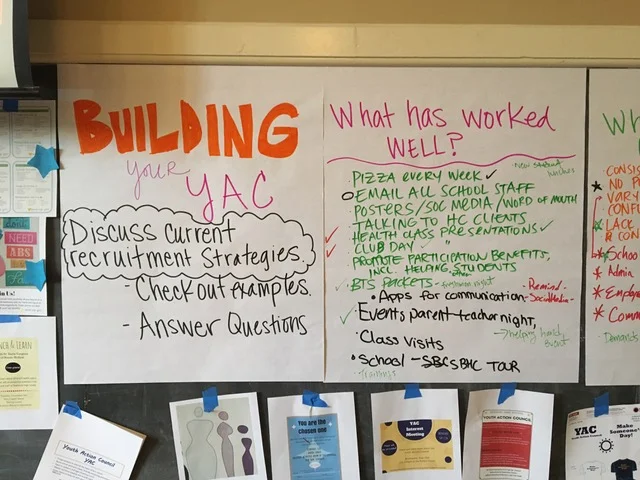 BUILDING
your
YAC
Discuss current
recruitment Strategies.
- Check out examples.
- Answer Questions
What has worked
WELL?
· New student
lunches
· PIZZA EVERY WEEK ✓
EMAIL ALL SCHOOL STAFF
· POSTERS/SOC MEDIA/WORD OF MOUTH
· TALKING TO HC CLIENTS
✓ · HEALTH CLASS PRESENTATIONS ✓
✓ · CLUB DAY ✓ "
· PROMOTE PARTICIPATION BENEFITS,
INCL. HELPING STUDENTS
✓ · BTS PACKETS - freshman night
- Remind -
• Apps for communication - Social Media -
✓ · Events parent-teacher night,
→ helping hands
event
· Class Visits
• School - SBC SBHC TOUR
· Training
Wh
CONSIS
NO P
VARY
CONFL
LACK
& CON
School
Admin
Emplo
Comm
Demands
NEED
ABS
in Us!
NCH & LEARN
Youth Action Council
YAC
You are the
chosen one
YAC
Interest
Meeting
YOUTH ACTION COUNCIL
YAC
Make
Someone's
Day!